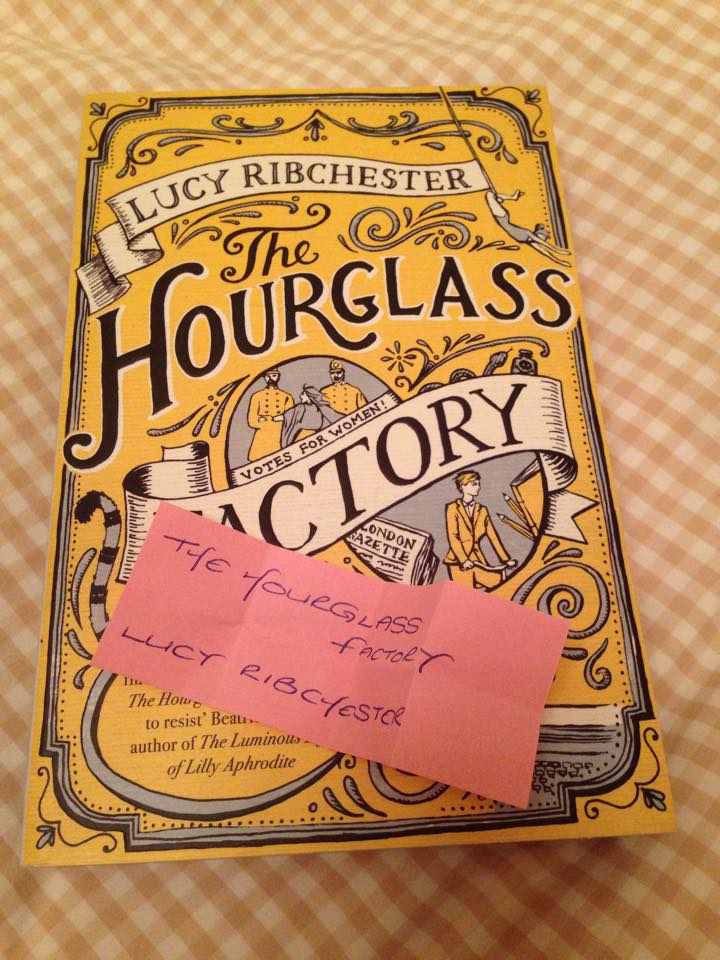 LUCY RIBCHESTER
The
HOURGLASS
VOTES FOR WOMEN!
FACTORY
LONDON
GAZETTE
THE HOURGLASS
FACTORY
LUCY RIBCHESTER
The
to resist'
author of The Luminous
of Lilly Aphrodite